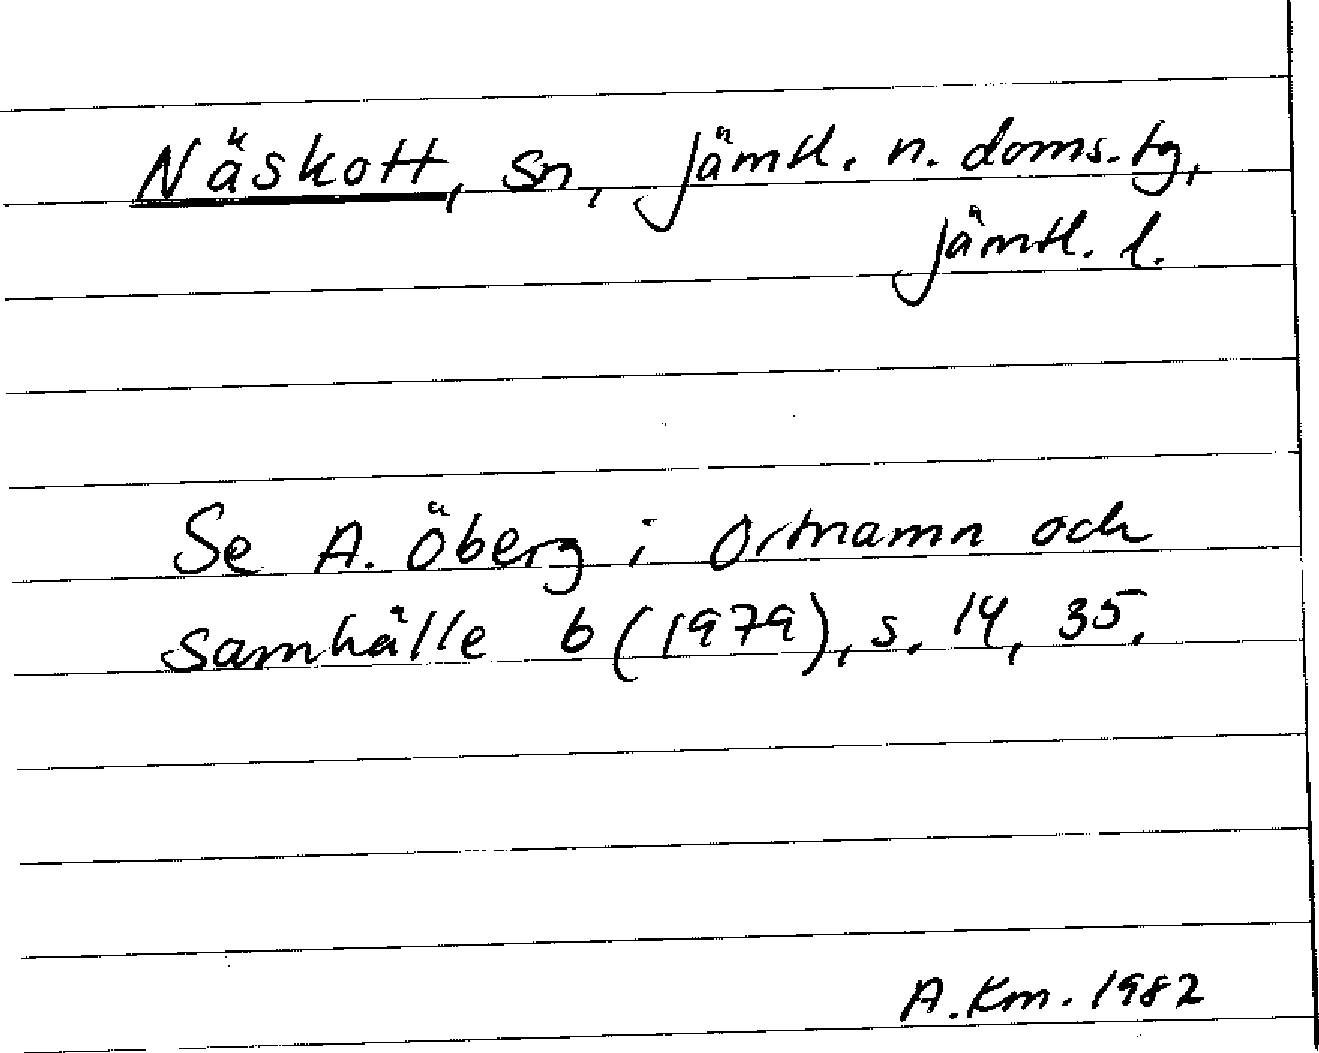 Näskott, sn, Jämtl. n. doms. tg,
Jämtl. l.
Se A. Öberg i Ortnamn och
samhälle 6 (1979), s. 14, 35.
A. Km. 1982